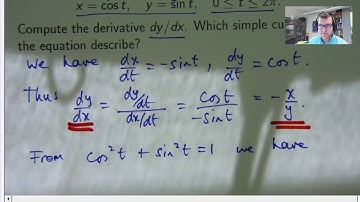 x = cos t, y = sin t, 0 ≤ t ≤ 2π.
Compute the derivative dy/dx. Which simple cu
the equation describe?
We have dx/dt = -sin t, dy/dt = cos t.
Thus dy/dx = (dy/dt)/(dx/dt) = cos t/-sin t = -x/y
From cos²t + sin²t = 1 we have